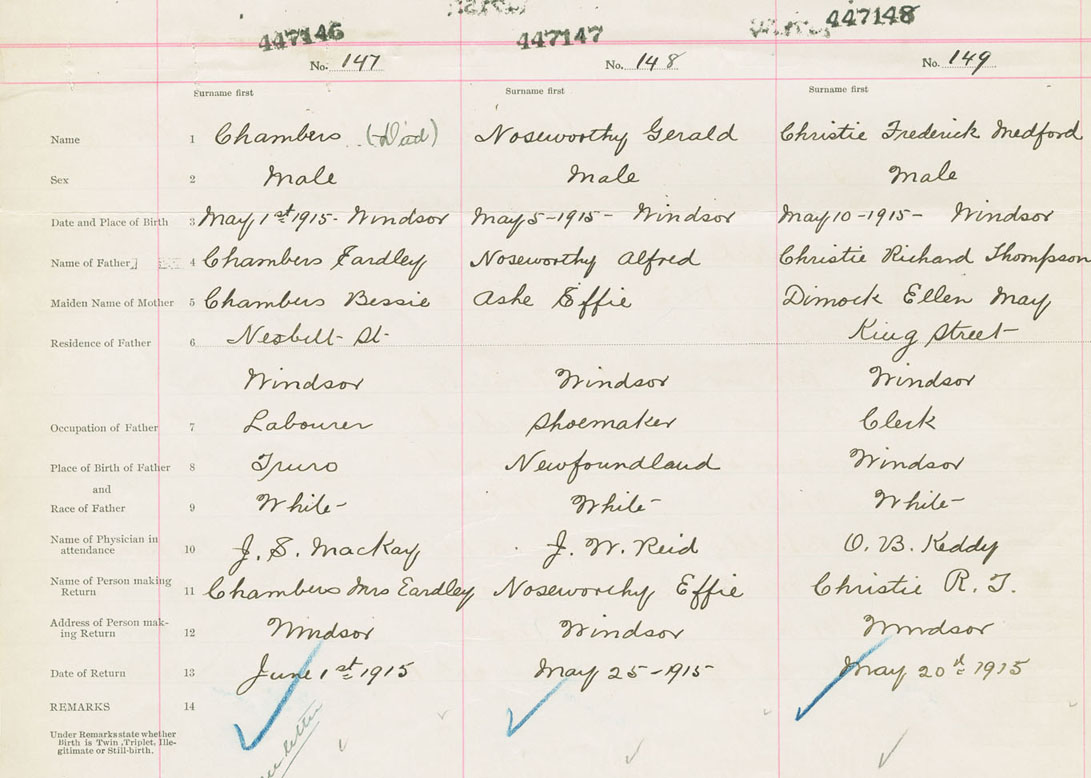 447146 447147 447148
No. 147 No. 148 No. 149
Surname first Surname first Surname first
Name 1 Chambers (Died) Noseworthy Gerald Christie Frederick Medford
Sex 2 Male Male Male
Date and Place of Birth 3 May 1st 1915 - Windsor May 5 - 1915 - Windsor May 10 - 1915 - Windsor
Name of Father 4 Chambers Eardley Noseworthy Alfred Christie Richard Thompson
Maiden Name of Mother 5 Chambers Bessie Ashe Effie Dimock Ellen May
Residence of Father 6 Nesbitt St King Street
Windsor Windsor Windsor
Occupation of Father 7 Labourer Shoemaker Clerk
Place of Birth of Father 8 Truro Newfoundland Windsor
and
Race of Father 9 White White White
Name of Physician in
attendance 10 J. S. MacKay J. W. Reid O. B. Keddy
Name of Person making
Return 11 Chambers Mrs Eardley Noseworthy Effie Christie R. T.
Address of Person mak-
ing Return 12 Windsor Windsor Windsor
Date of Return 13 June 1st 1915 May 25 - 1915 May 20th 1915
REMARKS 14
Under Remarks state whether
Birth is Twin, Triplet, Ille-
gitimate or Still-birth.
letter